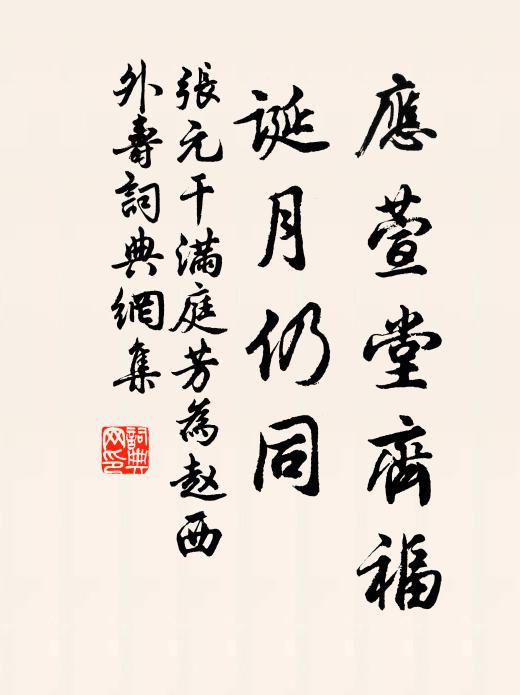 應萱堂齊福
誕月仍同
張元干满庭芳為赵西
外壽詞典網集
詞典
网印